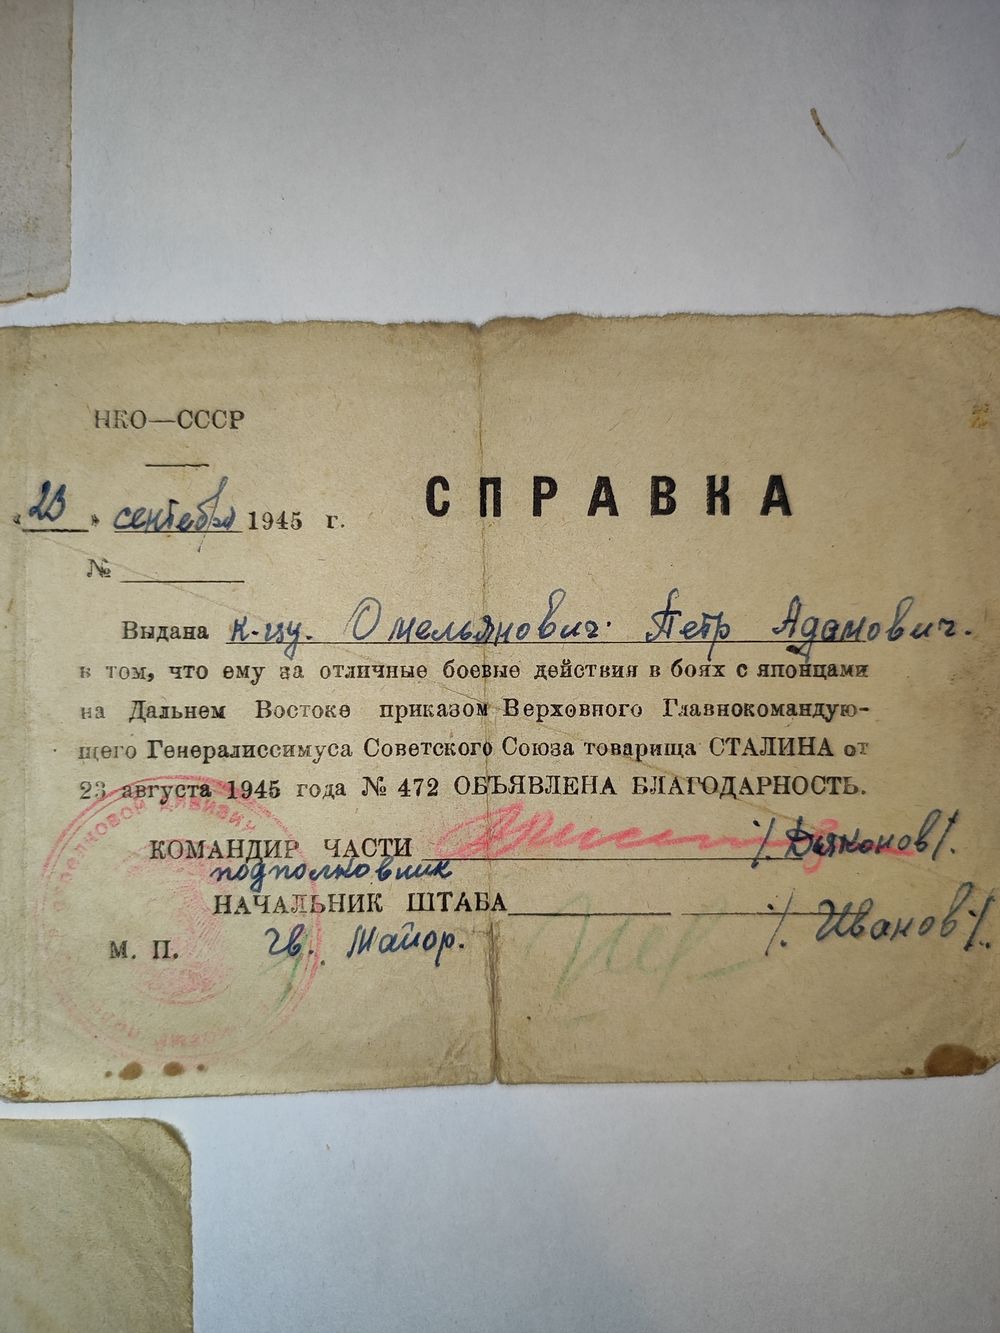 НКО—СССР
СПРАВКА
„23" сентября 1945 г.
№
Выдана к-цу. Омельянович Петр Адамович.
в том, что ему за отличные боевые действия в боях с японцами
на Дальнем Востоке приказом Верховного Главнокомандую-
щего Генералиссимуса Советского Союза товарища СТАЛИНА от
23 августа 1945 года № 472 ОБЪЯВЛЕНА БЛАГОДАРНОСТЬ.
КОМАНДИР ЧАСТИ /. Дьяконов/.
подполковник
НАЧАЛЬНИК ШТАБА /. Иванов/.
М. П. гв. Майор.
СТРЕЛКОВОЙ ДИВИЗИИ